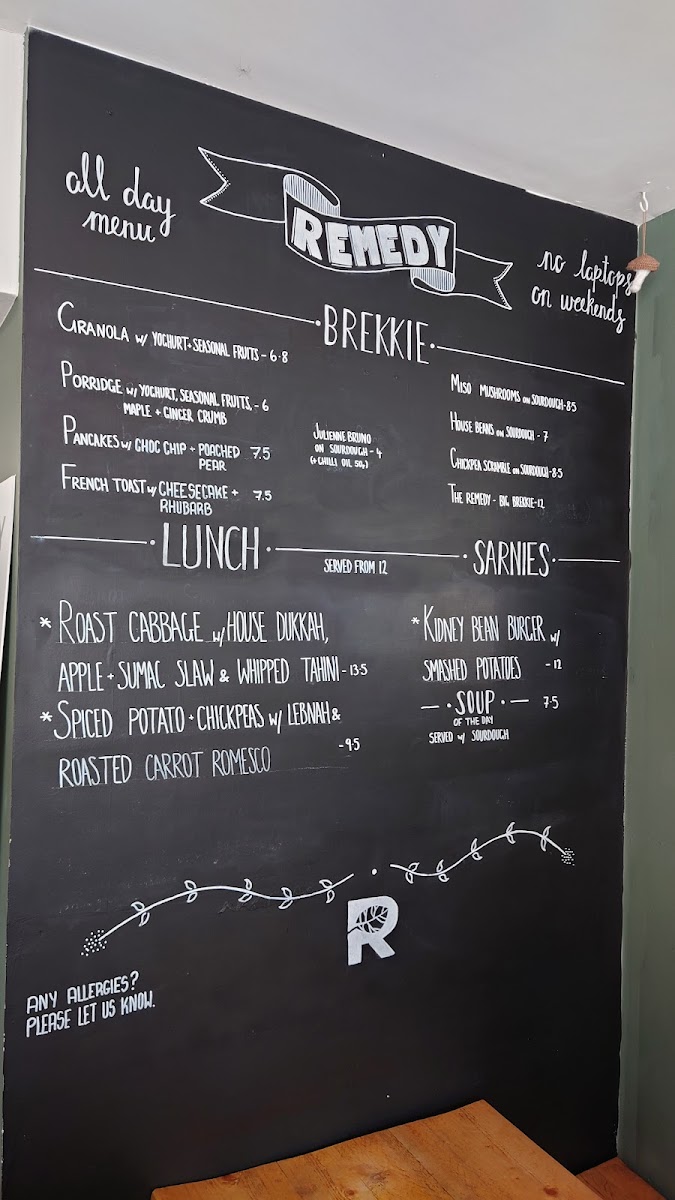 all day
menu
REMEDY
no laptops
on weekends
BREKKIE
GRANOLA w/ YOGHURT + SEASONAL FRUITS - 6.8
PORRIDGE w/ YOGHURT, SEASONAL FRUITS, - 6
MAPLE + GINGER CRUMB
PANCAKES w/ CHOC CHIP + POACHED 7.5
PEAR
FRENCH TOAST w/ CHEESECAKE + 7.5
RHUBARB
JULIENNE BRUNO
ON SOURDOUGH - 4
(+ CHILLI OIL 50p)
MISO MUSHROOMS ON SOURDOUGH - 8.5
HOUSE BEANS ON SOURDOUGH - 7
CHICKPEA SCRAMBLE ON SOURDOUGH - 8.5
THE REMEDY - BIG BREKKIE - 12
LUNCH
SERVED FROM 12
SARNIES
* ROAST CABBAGE w/ HOUSE DUKKAH,
APPLE + SUMAC SLAW & WHIPPED TAHINI - 13.5
* SPICED POTATO + CHICKPEAS w/ LEBNAH &
ROASTED CARROT ROMESCO - 9.5
* KIDNEY BEAN BURGER w/
SMASHED POTATOES - 12
SOUP 7.5
OF THE DAY
SERVED w/ SOURDOUGH
R
ANY ALLERGIES?
PLEASE LET US KNOW.